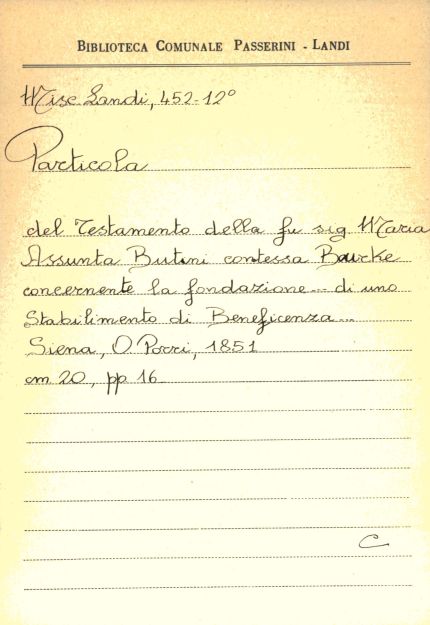 BIBLIOTECA COMUNALE PASSERINI - LANDI
Misc. Landi, 452-12°
Particola
del Testamento della fu sig. Maria
Assunta Butini contessa Bourke
concernente la fondazione... di uno
Stabilimento di Beneficenza...
Siena, O. Porri, 1851
cm 20, pp. 16
C